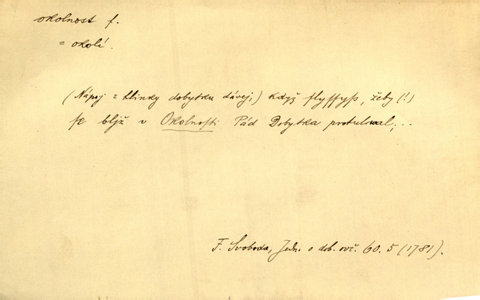 okolnost f.
= okolí.
(Nápoj z hlinky dobytku dávej,) když slyssyss, žeby (!)
se blýž v Okolnosti Pád Dobytka protuloval,...
F. Svoboda, Jedn. o dob. ovč. 60. 5 (1781).